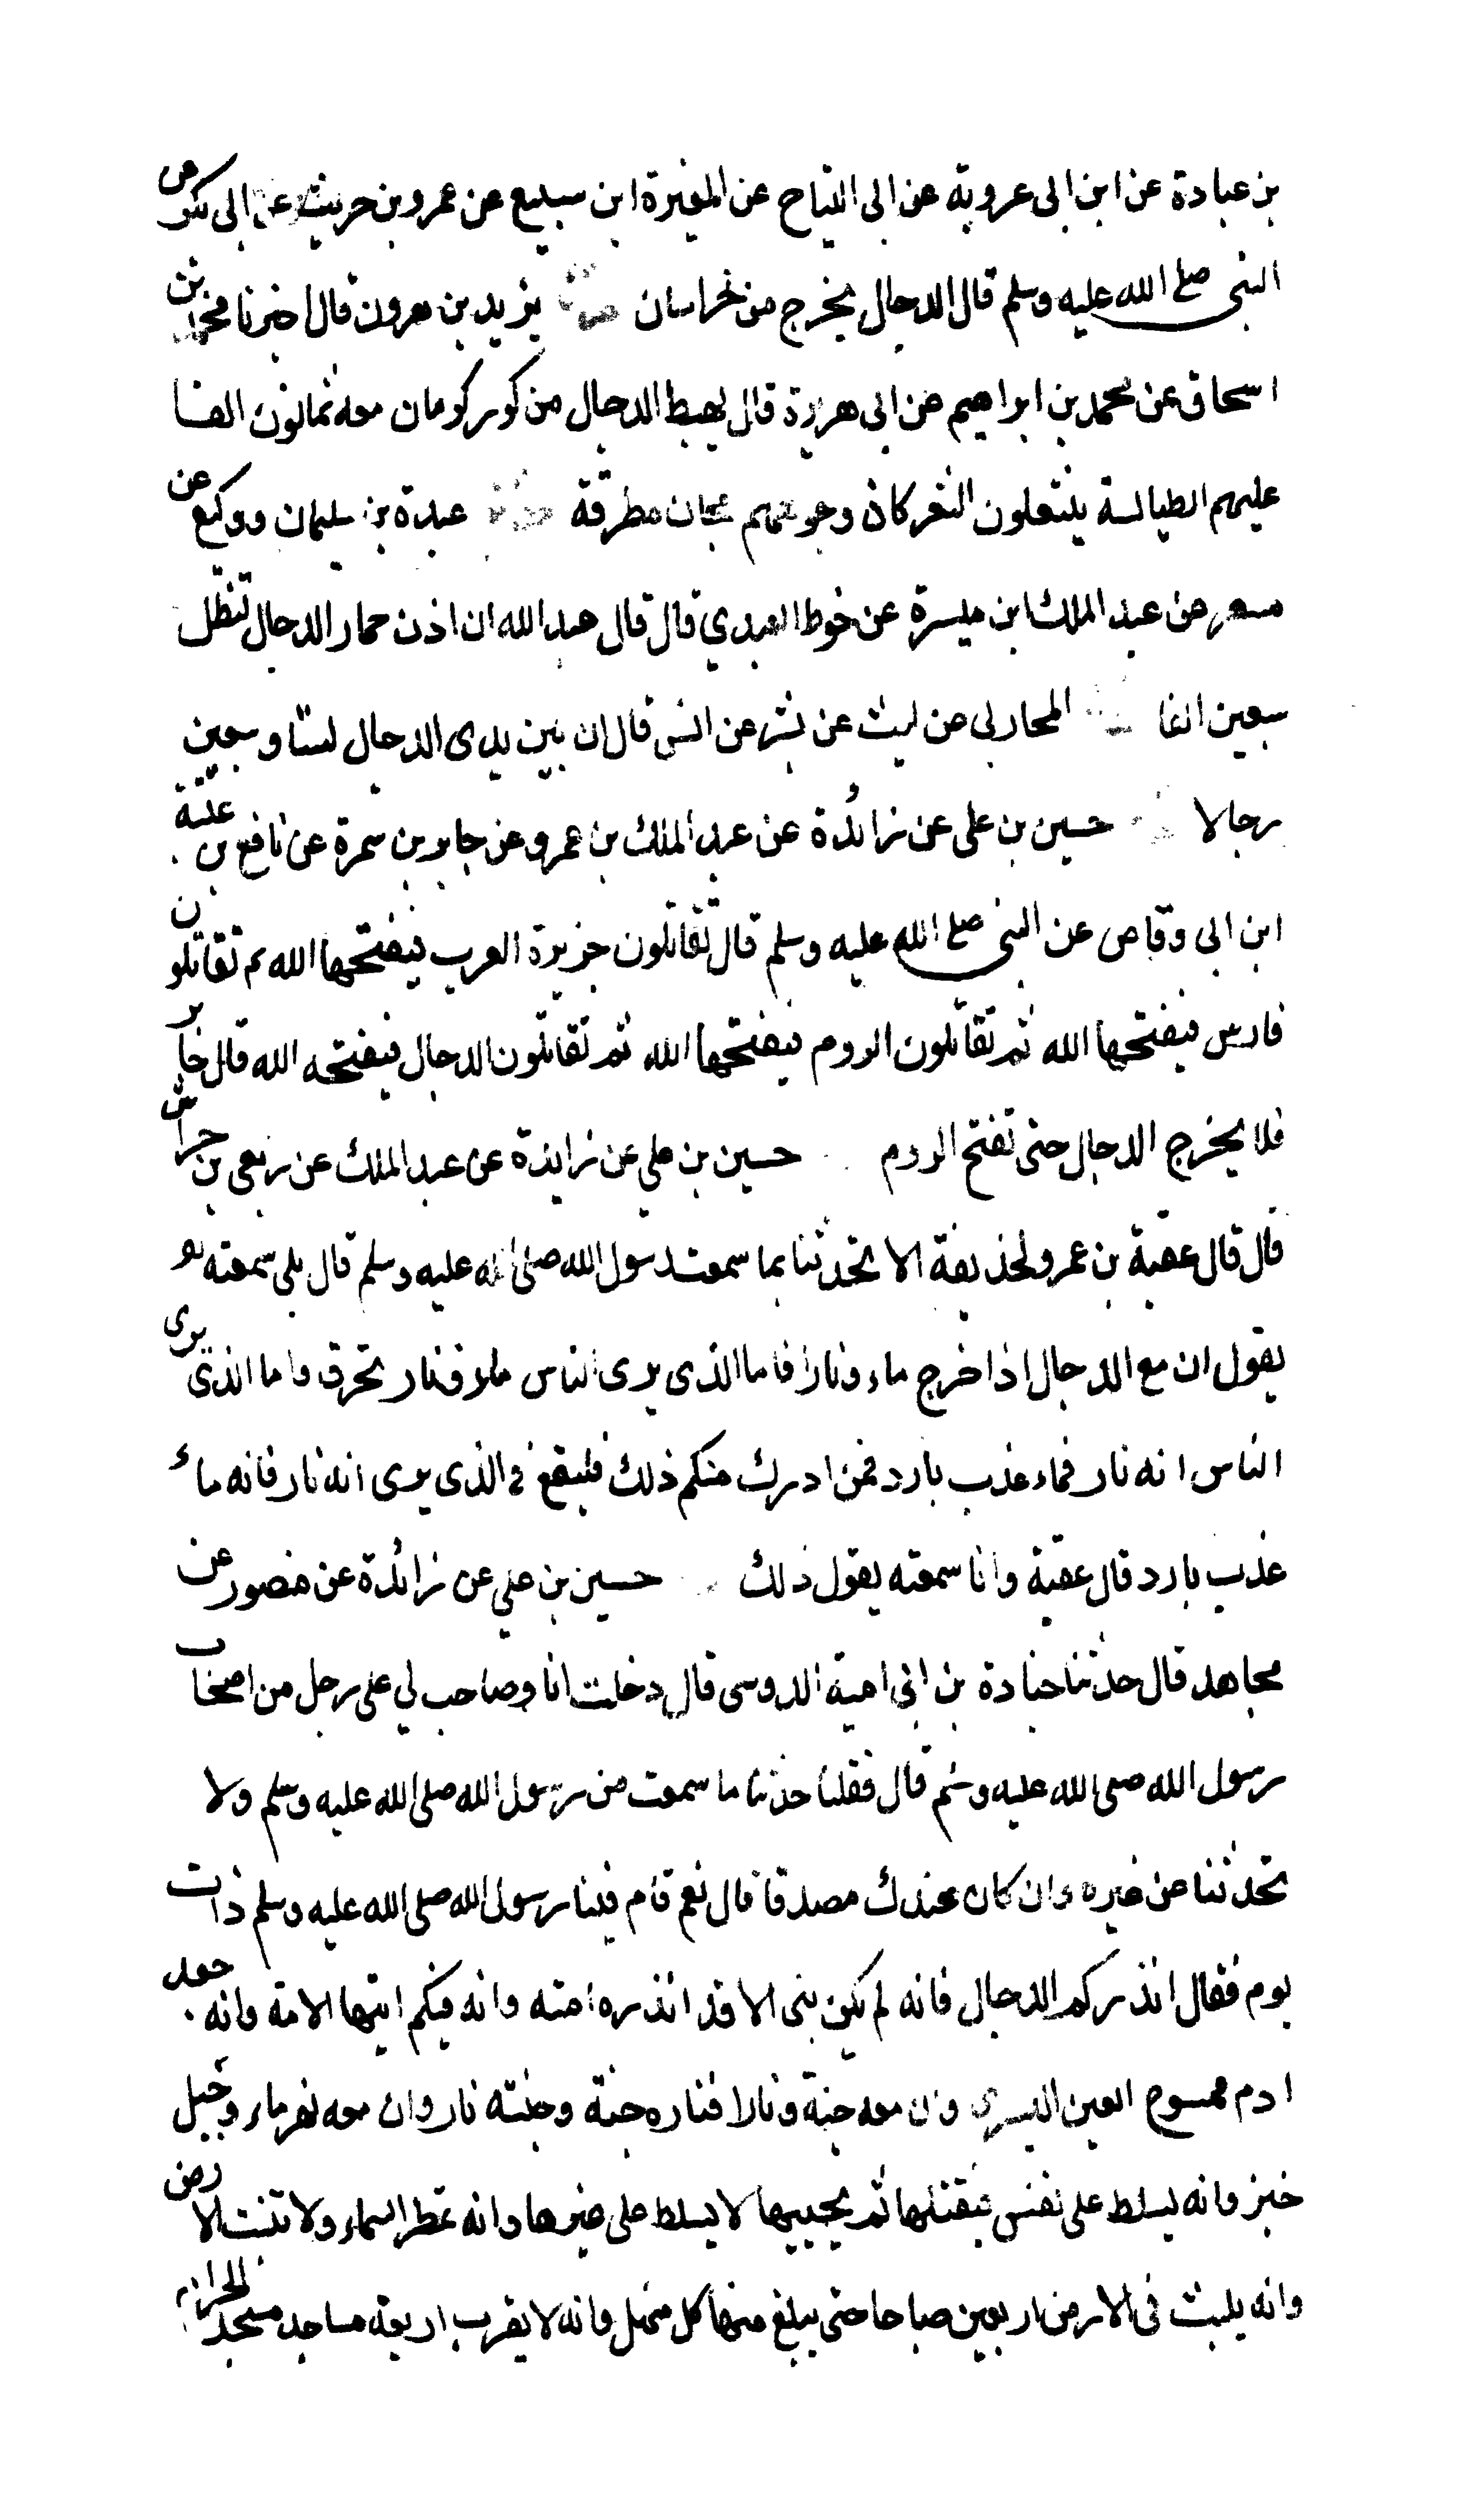 بن عبادة عن ابن ابى عروبة عن ابى التياح عن المغيرة ابن سبيع عن عمرو بن حريث عن ابى بكر عن
النبى صلى الله عليه وسلم قال الدجال يخرج من خراسان حدثنا يزيد بن هرون قال اخبرنا محمد بن
اسحاق عن محمد بن ابراهيم عن ابى هريرة قال يهبط الدجال من كور كومان معه ثمانون الفا
عليهم الطيالسة ينتعلون الشعر كان وجوههم مجان مطرقة حدثنا عبدة بن سليمان ووكيع عن
مسعر عن عبد الملك ابن ميسرة عن حوط العبدي قال قال عبد الله ان اذن حمار الدجال لتظل
سبعين الفا المحاربى عن ليث عن بشر عن انس قال ان بين يدى الدجال لستا وسبعين
رجالا حسين بن على عن زائدة عن عبد الملك بن عمرو عن جابر بن سمرة عن نافع بن عتبة
ابن ابى وقاص عن النبى صلى الله عليه وسلم قال تقاتلون جزيرة العرب فيفتحها الله ثم تقاتلون
فارس فيفتحها الله ثم تقاتلون الروم فيفتحها الله ثم تقاتلون الدجال فيفتحه الله قال جابر
فلا يخرج الدجال حتى تفتح الروم حسين بن علي عن زايدة عن عبد الملك عن ربعى بن حراش
قال قال عقبة بن عمرو لحذيفة الا تحدثنا بما سمعت رسول الله صلى الله عليه وسلم قال بلى سمعته
يقول ان مع الدجال اذا خرج ماء ونارا فاما الذى يرى الناس ماء فنار تحرق واما الذى يرى
الناس انه نار فماء عذب بارد فمن ادرك منكم ذلك فليقع فى الذى يرى انه نار فانه ماء
عذب بارد قال عقبة وانا سمعته يقول ذلك حسين بن علي عن زائدة عن منصور عن
مجاهد قال حدثنا جنادة بن ابى امية الدوسى قال دخلت انا وصاحب لي على رجل من اصحاب
رسول الله صلى الله عليه وسلم قال فقلنا حدثنا ما سمعت من رسول الله صلى الله عليه وسلم ولا
تحدثنا عن غيره وان كان عندك مصدقا قال نعم قام فينا رسول الله صلى الله عليه وسلم ذات
يوم فقال انذركم الدجال فانه لم يكن نبى الا قد انذره امته وانه فيكم ايتها الامة وانه جعد
ادم ممسوح العين اليسرى وان معه جنة ونارا فناره جنة وجنته نار وان معه نهر ماء وجبل
خبز وانه يسلط على نفس فيقتلها ثم يحييها لا يسلط على غيرها وانه تمطر السماء ولا تنبت الارض
وانه يلبث فى الارض اربعين صباحا حتى يبلغ منها كل منهل وانه لا يقرب اربعة مساجد مسجد الحرام